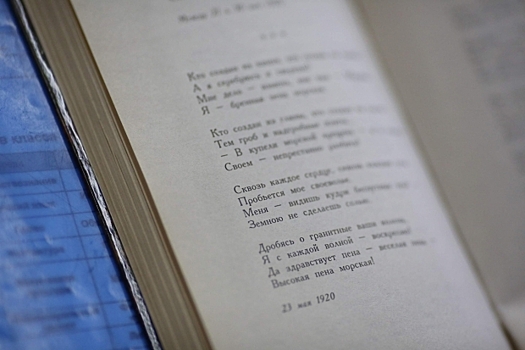 * * *
Кто создан из камня, кто создан из глины,
А я серебрюсь и сверкаю!
Мне дело — измена, мне имя —
Я — бренная пена морская.
Кто создан из глины, кто создан
Тем гроб и надгробные плиты...
— В купели морской крещена —
Своем — непрестанно разбита!
Сквозь каждое сердце, сквозь каждые
Пробьется мое своеволье.
Меня — видишь кудри беспутные эти?
Земною не сделаешь солью.
Дробясь о гранитные ваши колена,
Я с каждой волной — воскресаю!
Да здравствует пена — веселая пена —
Высокая пена морская!
23 мая 1920
в класса